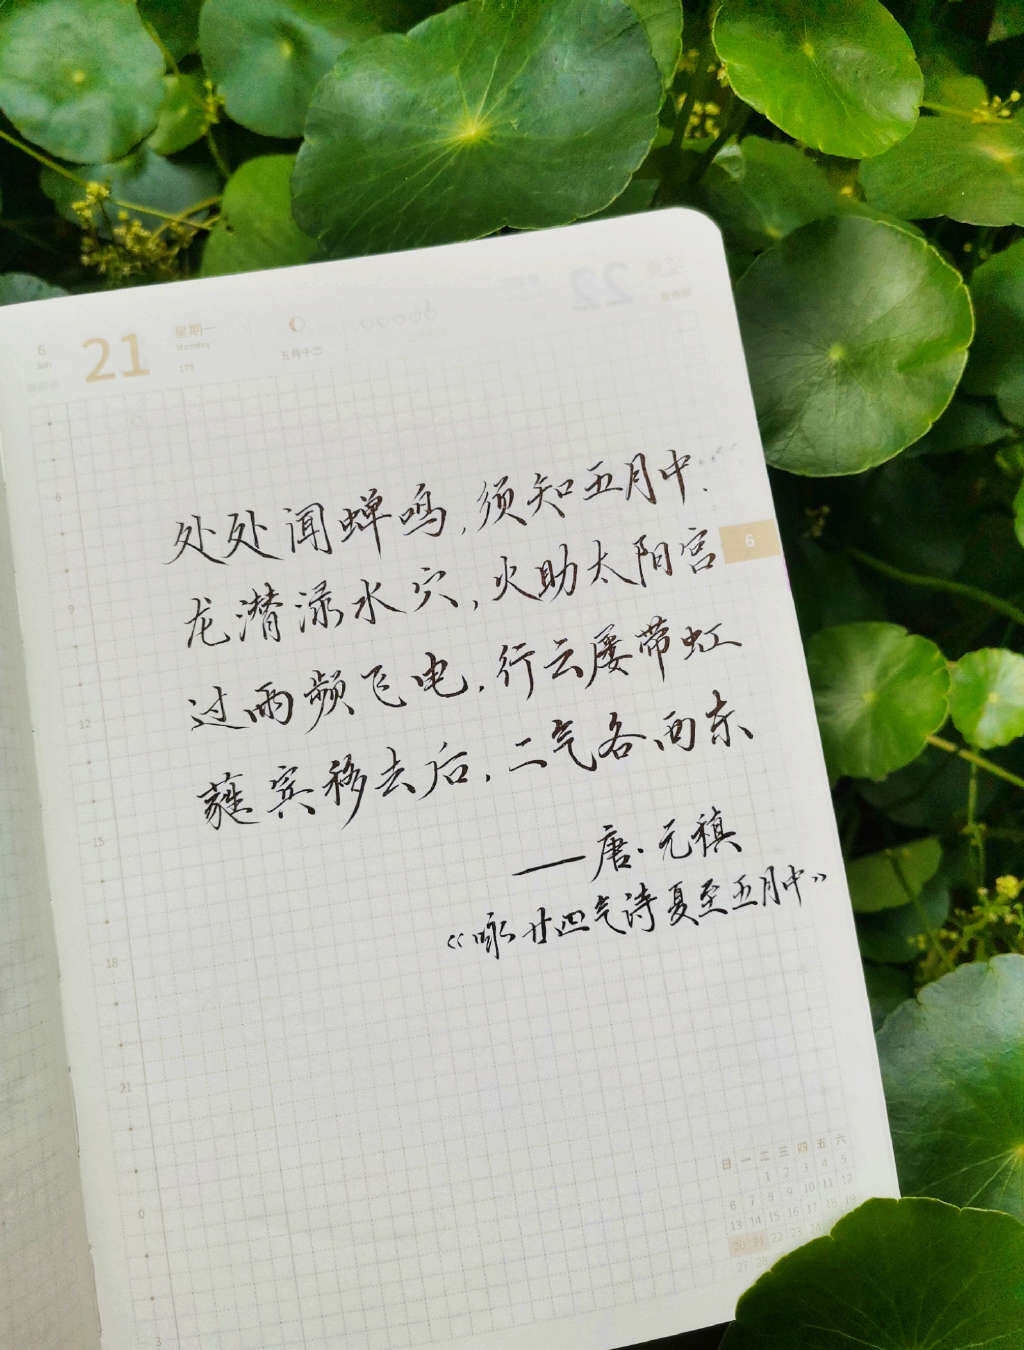 6
Jun
21
星期一
Monday
173
五月十二
22
6
处处闻蝉鸣,须知五月中.
龙潜渌水穴,火助太阳宫
过雨频飞电,行云屡带虹
蕤宾移去后,二气各西东
——唐·元稹
《咏廿四气诗 夏至五月中》
6
9
12
15
18
21
0
3
日 一 二 三 四 五 六
1 2 3 4 5
6 7 8 9 10 11 12
13 14 15 16 17 18 19
20 21 22 23 24